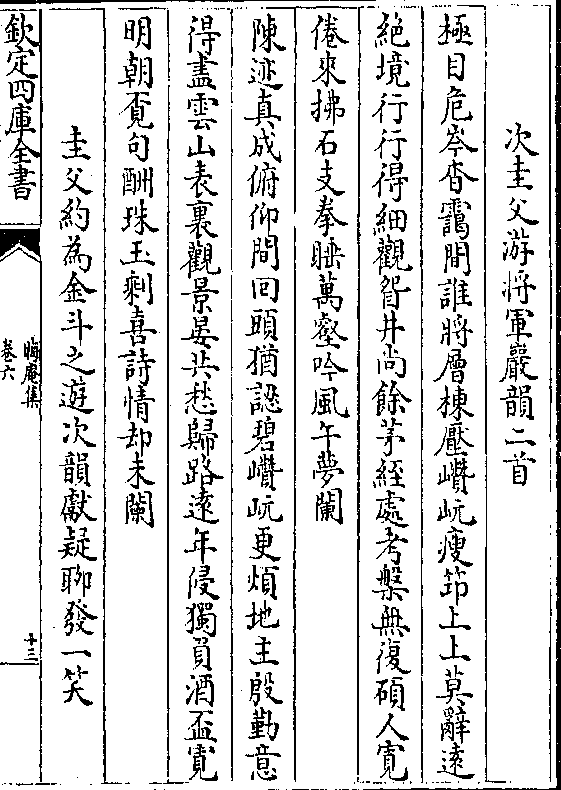 次圭父游將軍巖韻二首
極目危岑杳靄間誰將層棟壓巑岏瘦笻上上莫辭遠
絶境行行得細觀眢井尚餘茅絰處考槃無復碩人寛
倦來拂石支拳睡萬壑吟風午夢闌
陳迹真成俯仰間回頭猶認碧巑岏更煩地主殷勤意
得盡雲山表裏觀景晏共愁歸路遠年侵獨負酒盃寛
明朝覔句酬珠玉剩喜詩情却未闌
圭父約為金斗之遊次韻獻疑聊發一笑
欽定四庫全書
晦庵集
卷六
十三